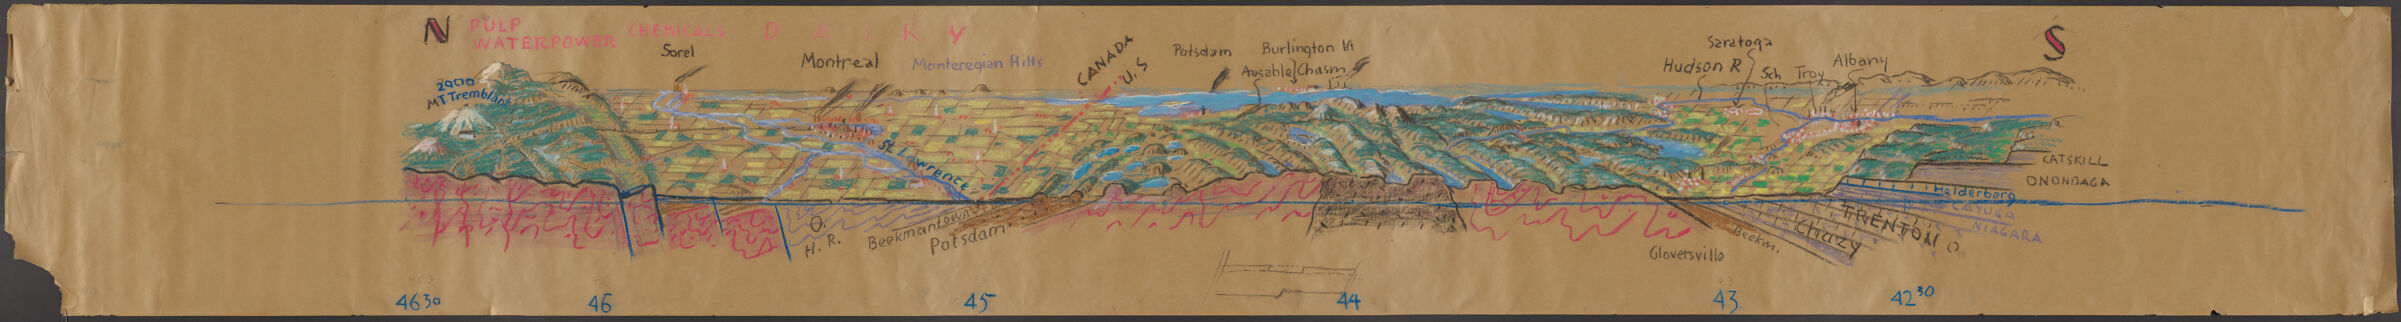 N
PULP
WATERPOWER
CHEMICALS
DAIRY
S
Sorel
Montreal
Monteregian Hills
CANADA
U.S
Potsdam
Burlington Vt
Ausable
Chasm
Saratoga
Hudson R
Sch
Troy
Albany
MT Tremblant
St. Lawrence
CATSKILL
ONONDAGA
Helderberg
CAYUGA
NIAGARA
O.
H. R.
Beekmantown
Potsdam
Gloversville
Beekm.
Chazy
TRENTON
O
46 30
46
45
44
43
42 30